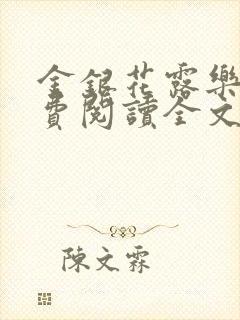 金銀花露樂
費閱讀全文
陳文霖